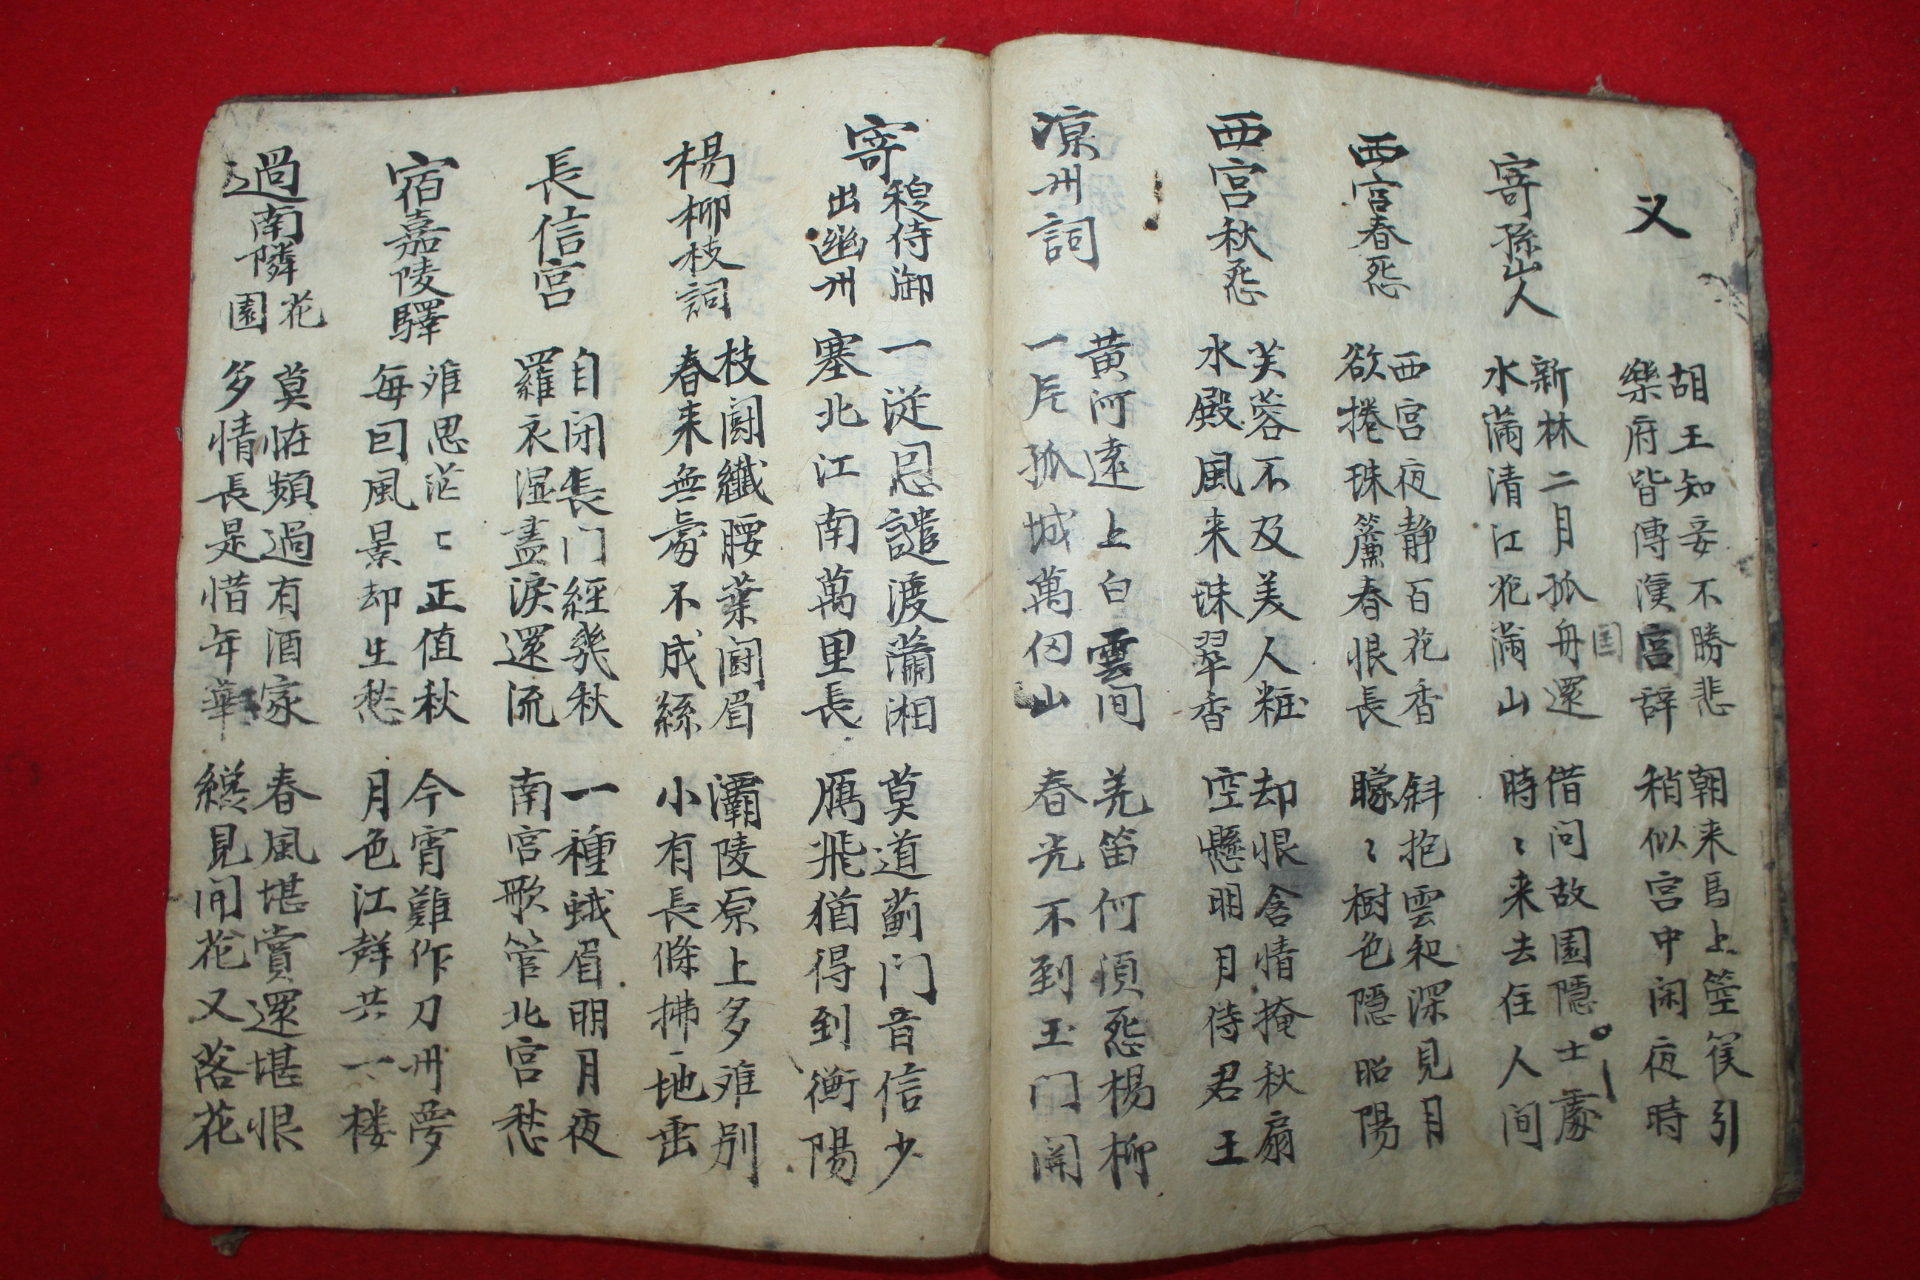 又
胡王知妾不勝悲
樂府皆傳漢宮辭
国
朝来馬上箜篌引
稍似宮中闲夜時
寄孫山人
新林二月孤舟還
水滿清江花滿山
借问故園隱士處
時〻来去住人间
西宮春怨
西宮夜静百花香
欲捲珠簾春恨長
斜抱雲和深見月
朦〻樹色隱昭陽
西宮秋怨
芙蓉不及美人粧
水殿風来珠翠香
却恨含情掩秋扇
空懸明月待君王
凉州詞
黄河遠上白雲间
一片孤城萬仞山
羌笛何須怨楊柳
春光不到玉门開
寄穆侍御出幽州
一從恩譴渡瀟湘
塞北江南萬里長
莫道薊门音信少
鴈飛猶得到衡陽
楊柳枝詞
枝鬪纖腰葉鬪眉
春来無處不成絲
灞陵原上多难別
小有長條拂地垂
長信宮
自闭長门經幾秋
羅衣湿盡淚還流
一種蛾眉明月夜
南宮歌管北宮愁
宿嘉陵驛
难思茫〻正值秋
每回風景却生愁
今宵難作刀州夢
月色江聲共一楼
過南隣花園
莫怪頻過有酒家
多情長是惜年華
春風堪賞還堪恨
纔見闲花又落花